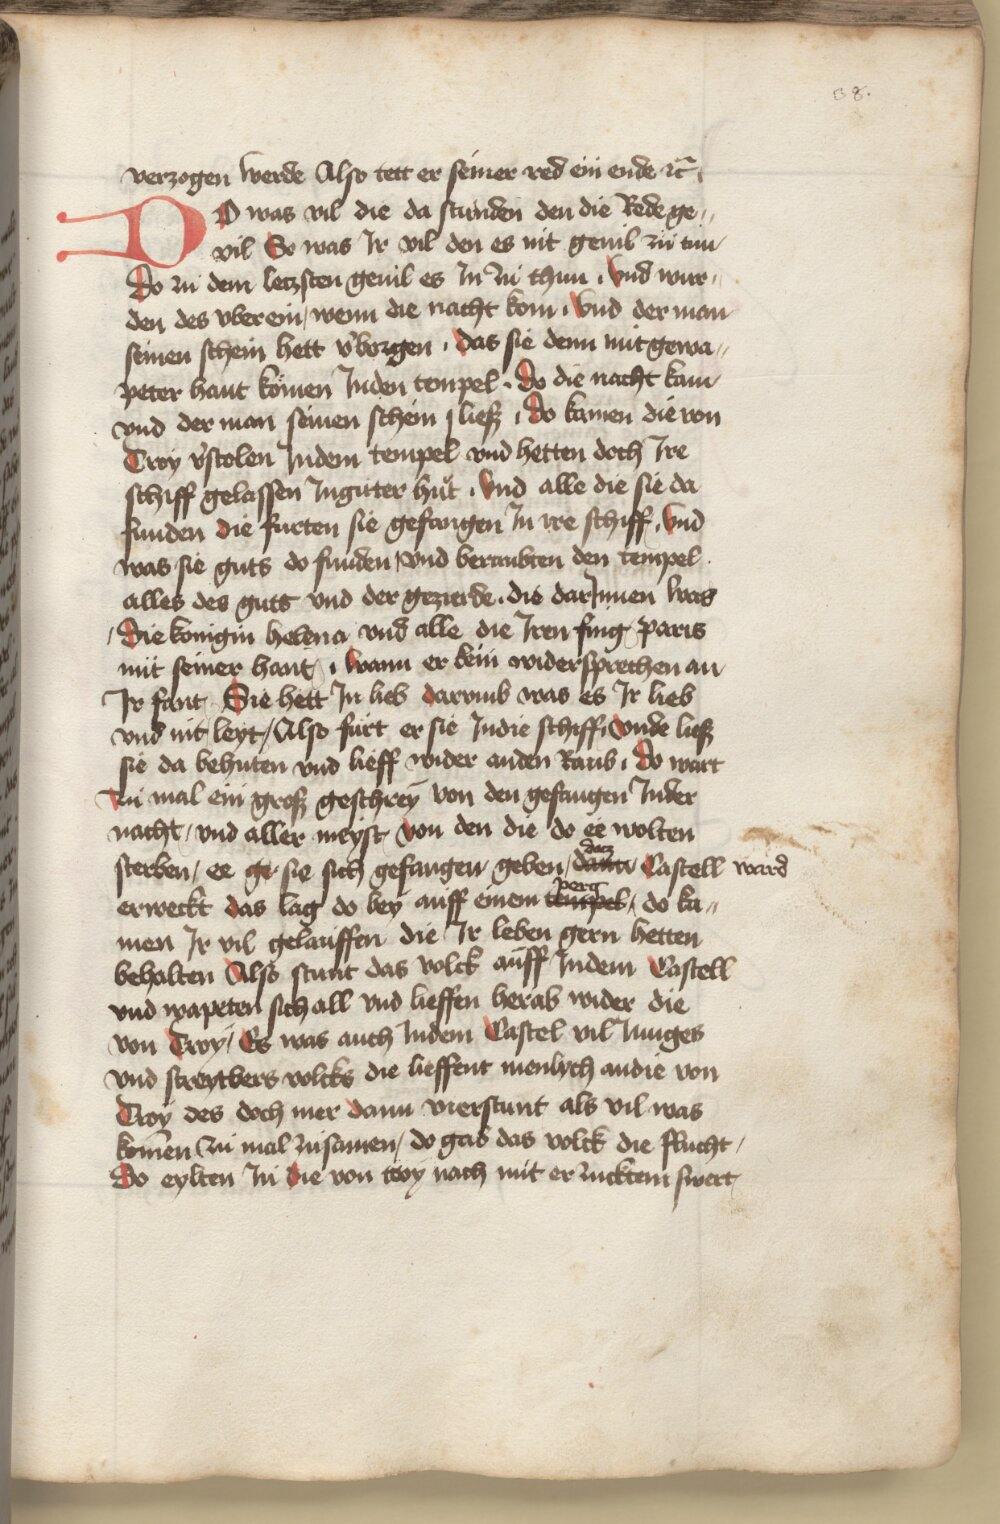 38.
verzogen werde Also tett er seiner red ein ende ꝛc̄
DO was vil die da stunden den die Rede ge„
vil So was Ir vil den es nit gevil zü tun
Do zu dem letzsten gevil es In zu thun . vnd wur„
den des vberein / wenn die nacht kom . vnd der man
seinen schein hett v̉borgen . das sie denn mit gewa„
peter hant kömen Inden tempel . do die nacht kam
vnd der man seinen schein ließ . do kamen die von
Troy v̉stolen Indem tempel vnd hetten doch Ire
schiff gelassen Inguter hüt . vnd alle die sie da
funden die furten sie gefangen In ire schiff . vnd
was sie guts do funden / vnd beraubten den tempel .
alles des guts vnd der gezierde . die darInnen was
/ Die konigin helena vnd alle die Iren fing paris
mit seiner hant . wann er kein widersprechen an
Ir fant Sie hett In lieb darvmb was es Ir lieb
vnd nit leyt / Also fürt er sie Indie schiff / vnde ließ
sie da behuten vnd lieff wider anden Raub . do wart
zu mal ein groß geschrey von den gefangen Inder
nacht / vnd aller meyst von den die do ee wolten
sterben / ee ge sie sich gefangen geben / daz Castell ward
erweckt das lag do bey auff einem tempel perg / do ka„
men Ir vil gelauffen die Ir leben gern hetten
behalten Also stunt das volck aüff Indem Castell
vnd wapeten sich all vnd lieffen herab wider die
von Troy / Es was auch Indem Castel vil Iunges
vnd streytbers volcks die lieffent menlych andie von
Troy des doch mer dann vierstunt als vil was
komen zu mal zusamen / do gab das volck die flucht /
Do eylten In die von troy nach mit er zucktem swert